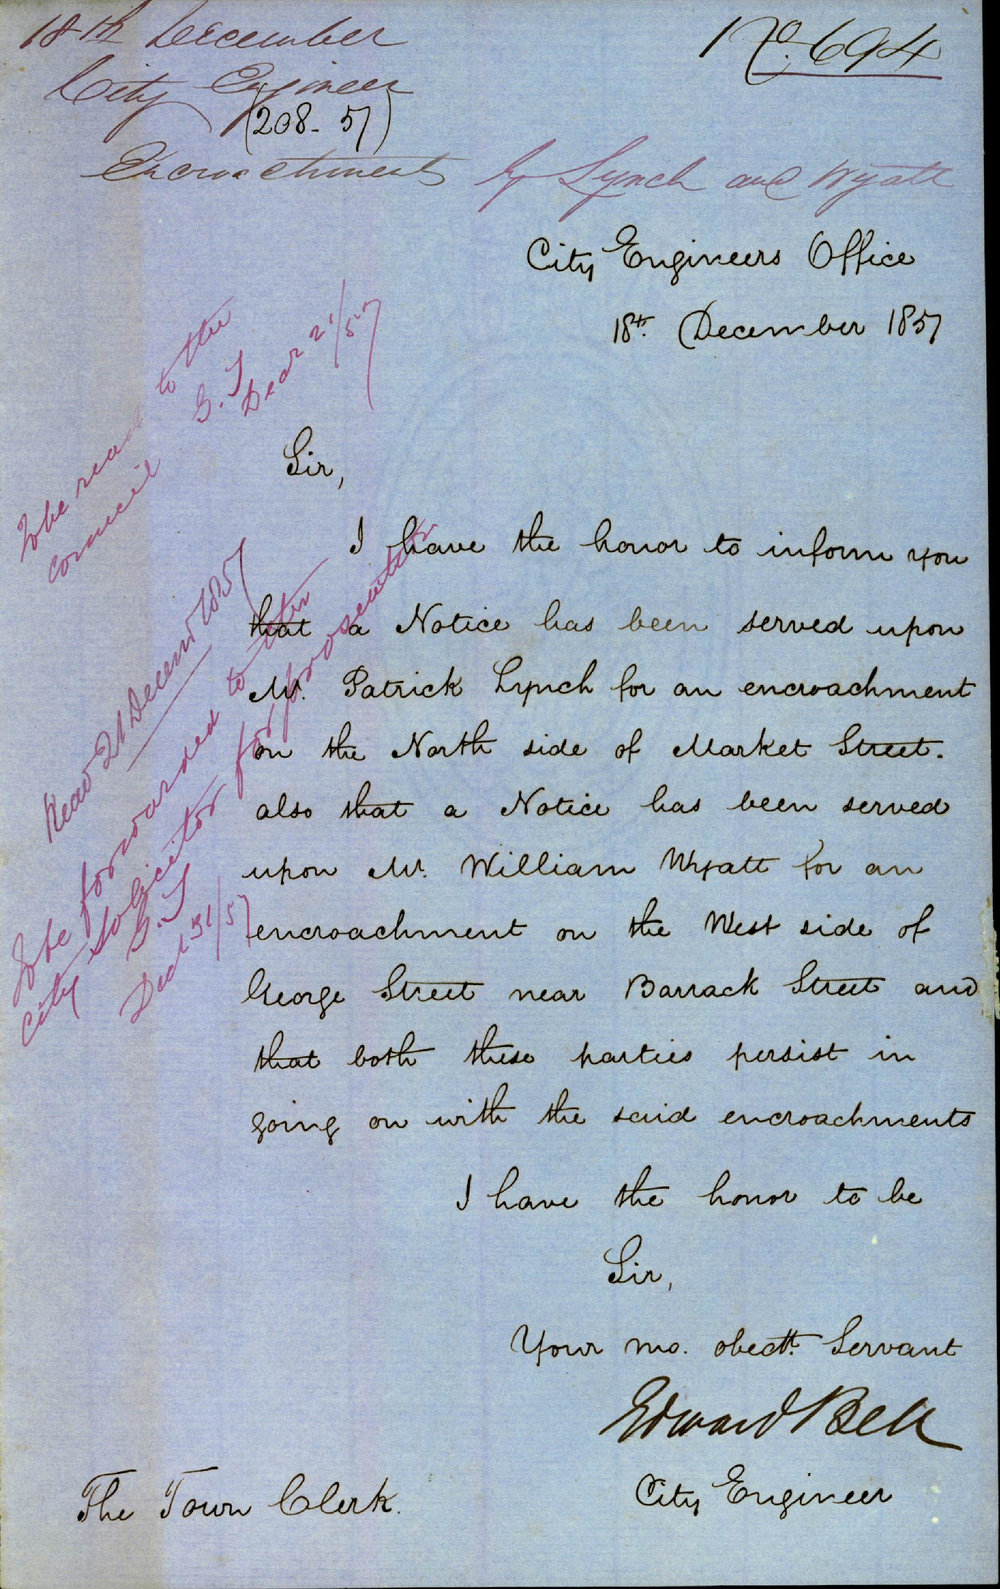 18th December
No. 694
City Engineer
(208-57)
Encroachments by Lynch and Wyatt
City Engineers Office
18th December 1857
To be read to the
council
G.T
Decr 21/57
Sir,
I have the honor to inform you
that a Notice has been served upon
Mr. Patrick Lynch for an encroachment
on the North side of Market Street.
also that a Notice has been served
upon Mr. William Wyatt for an
encroachment on the West side of
George Street near Barrack Street and
that both these parties persist in
going on with the said encroachments
Read 21 Decemr 1857
To be forwarded to the
City Solicitor for prosecution
G.T
Decr 31/57
I have the honor to be
Sir,
Your mo. obedt. Servant
Edward Bell
City Engineer
The Town Clerk.